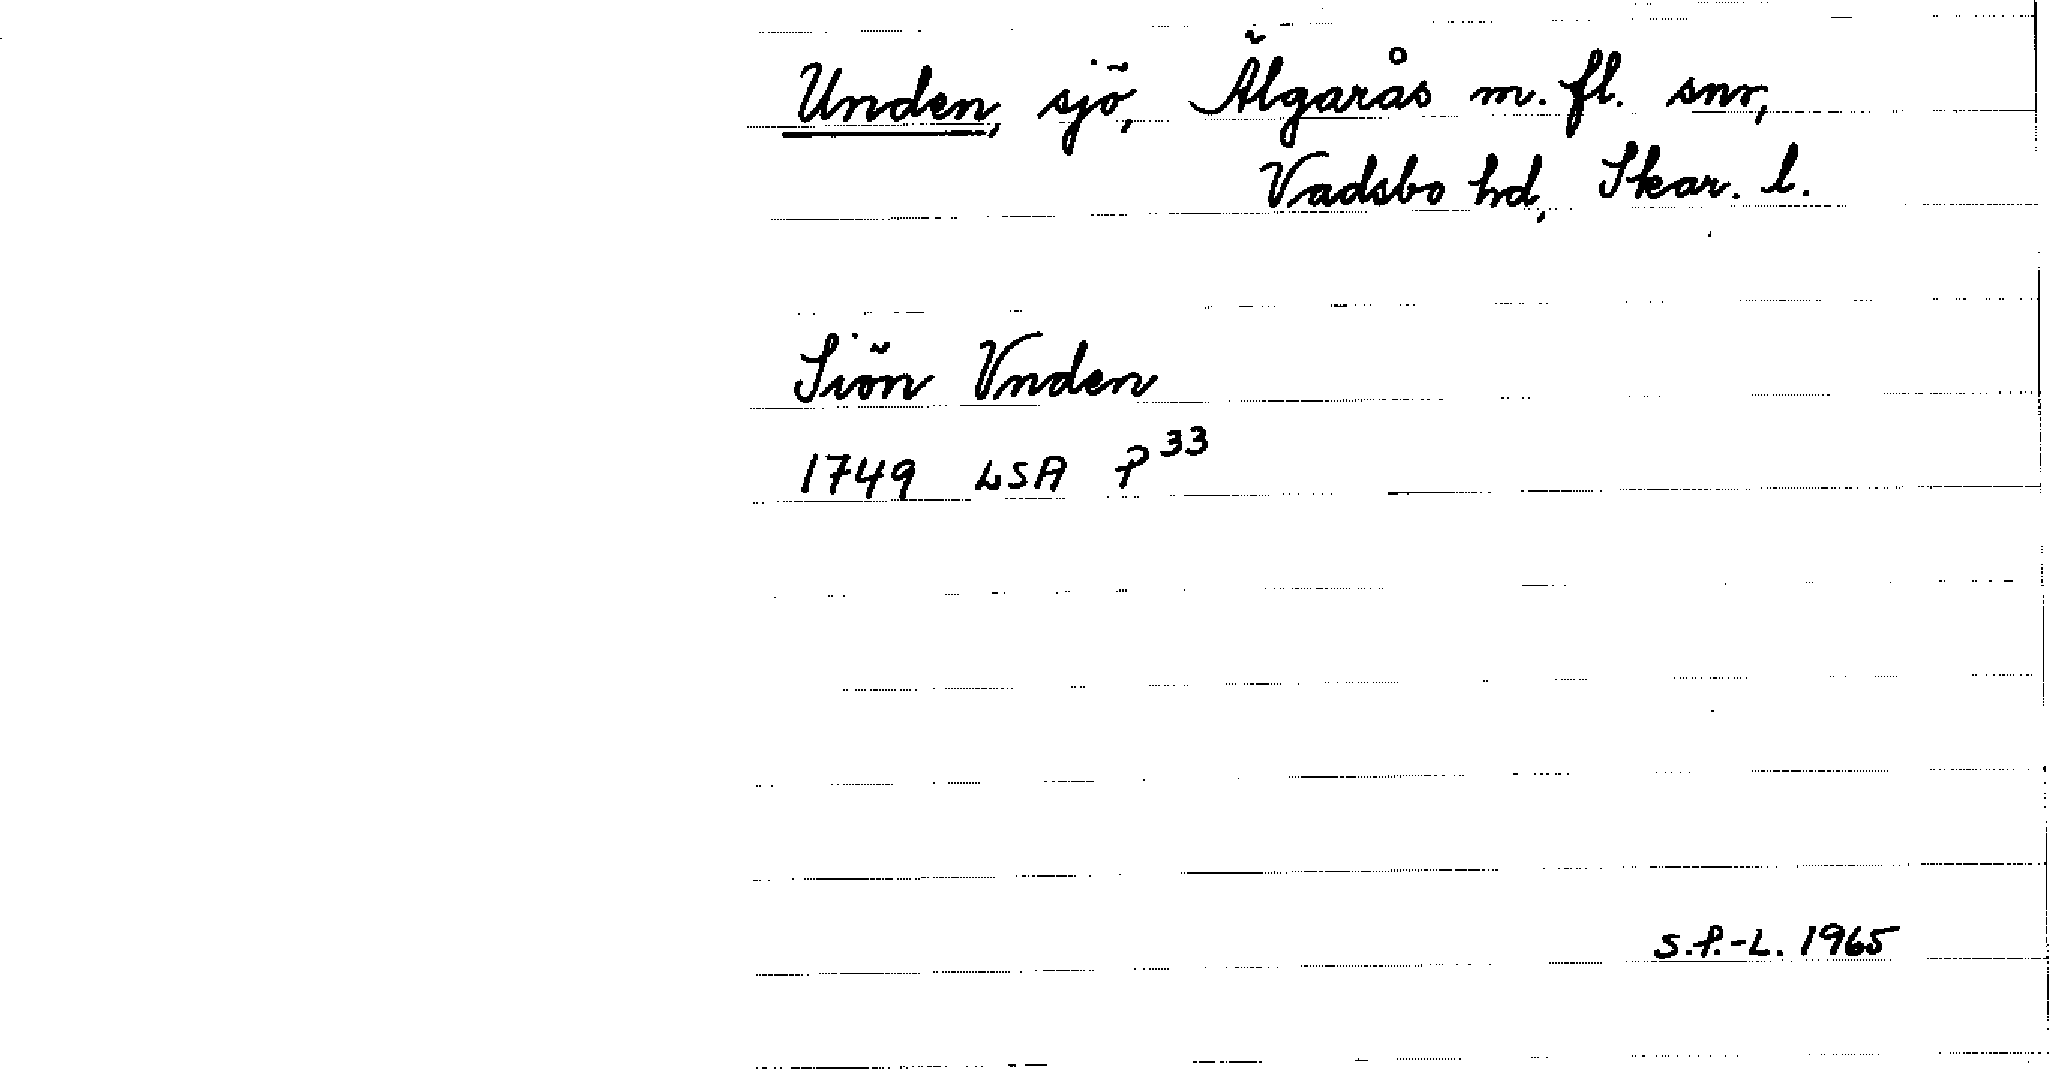 Unden, sjö, Älgarås m. fl. snr,
Vadsbo hd, Skar. l.
Siön Vnden
1749 LSA P³³
S.P.-L. 1965